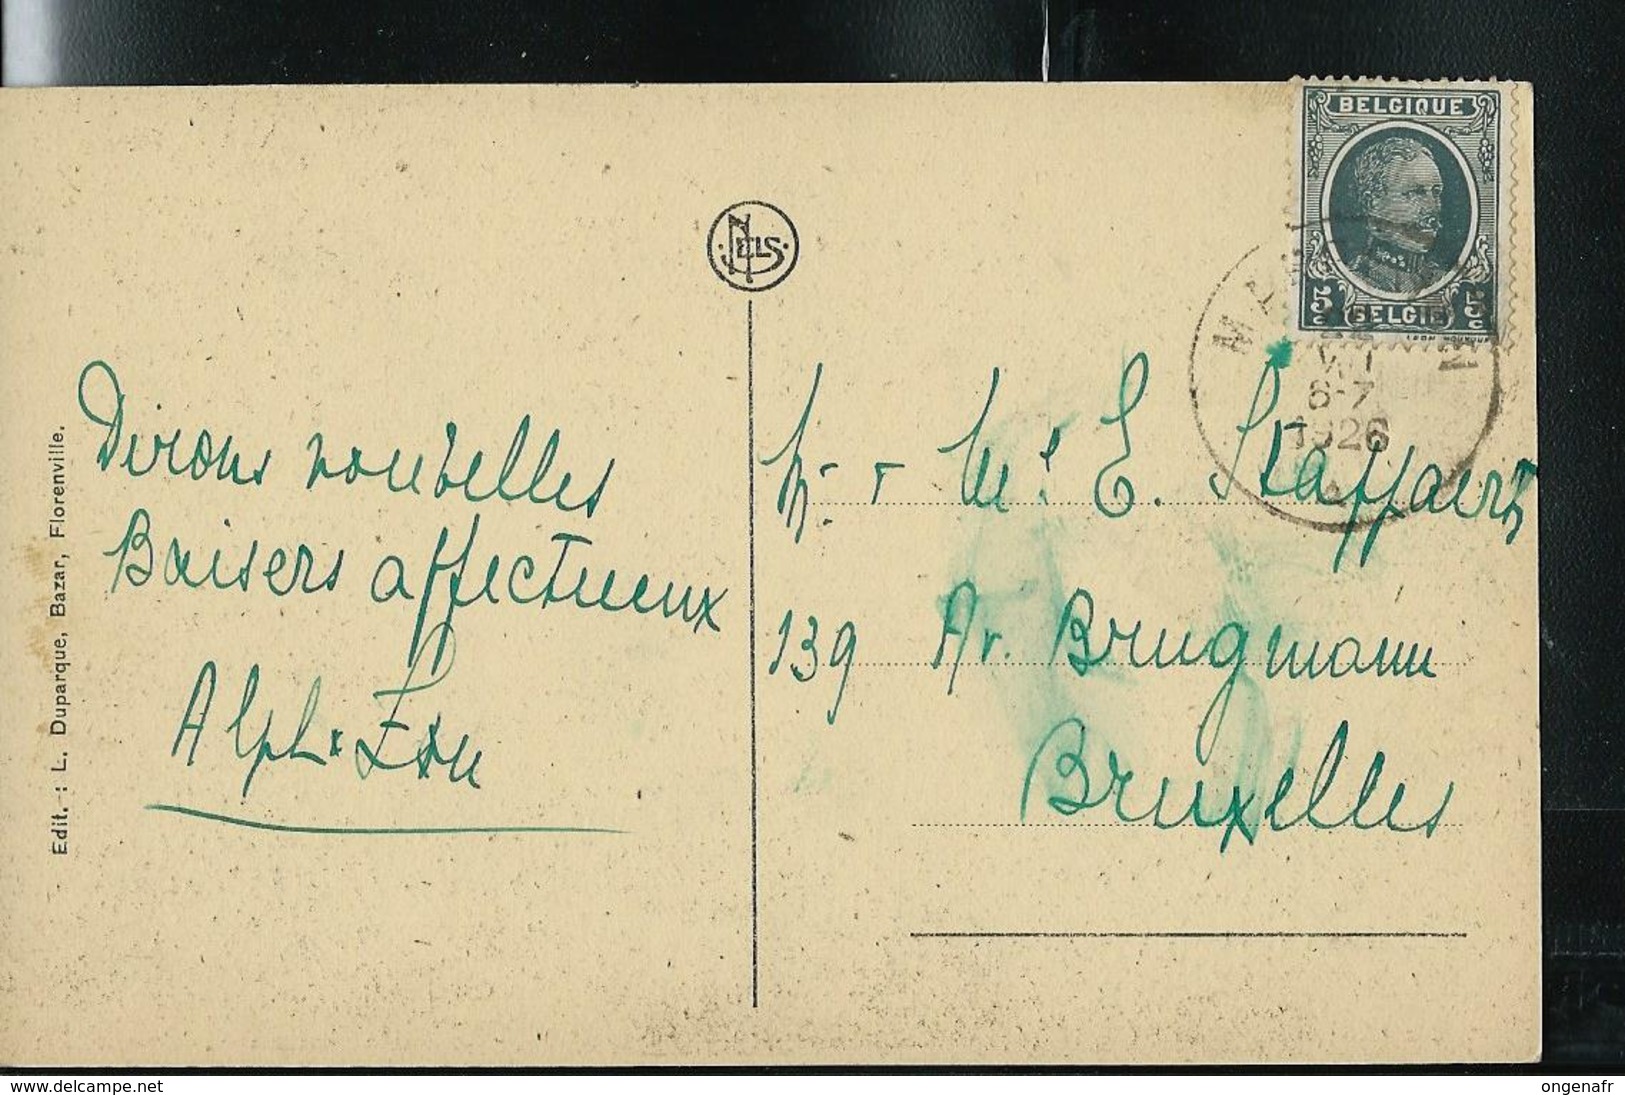 BELGIQUE
5c 5c
BELGIE
NELS
VI
6-7
1926
Edit. : L. Duparque, Bazar, Florenville.
Dirons nouvelles
Baisers affectueux
Alph
Mr. & Me. E. Staffaerts
139 Av. Brugmann
Bruxelles
© delcampe.net
ongenafr